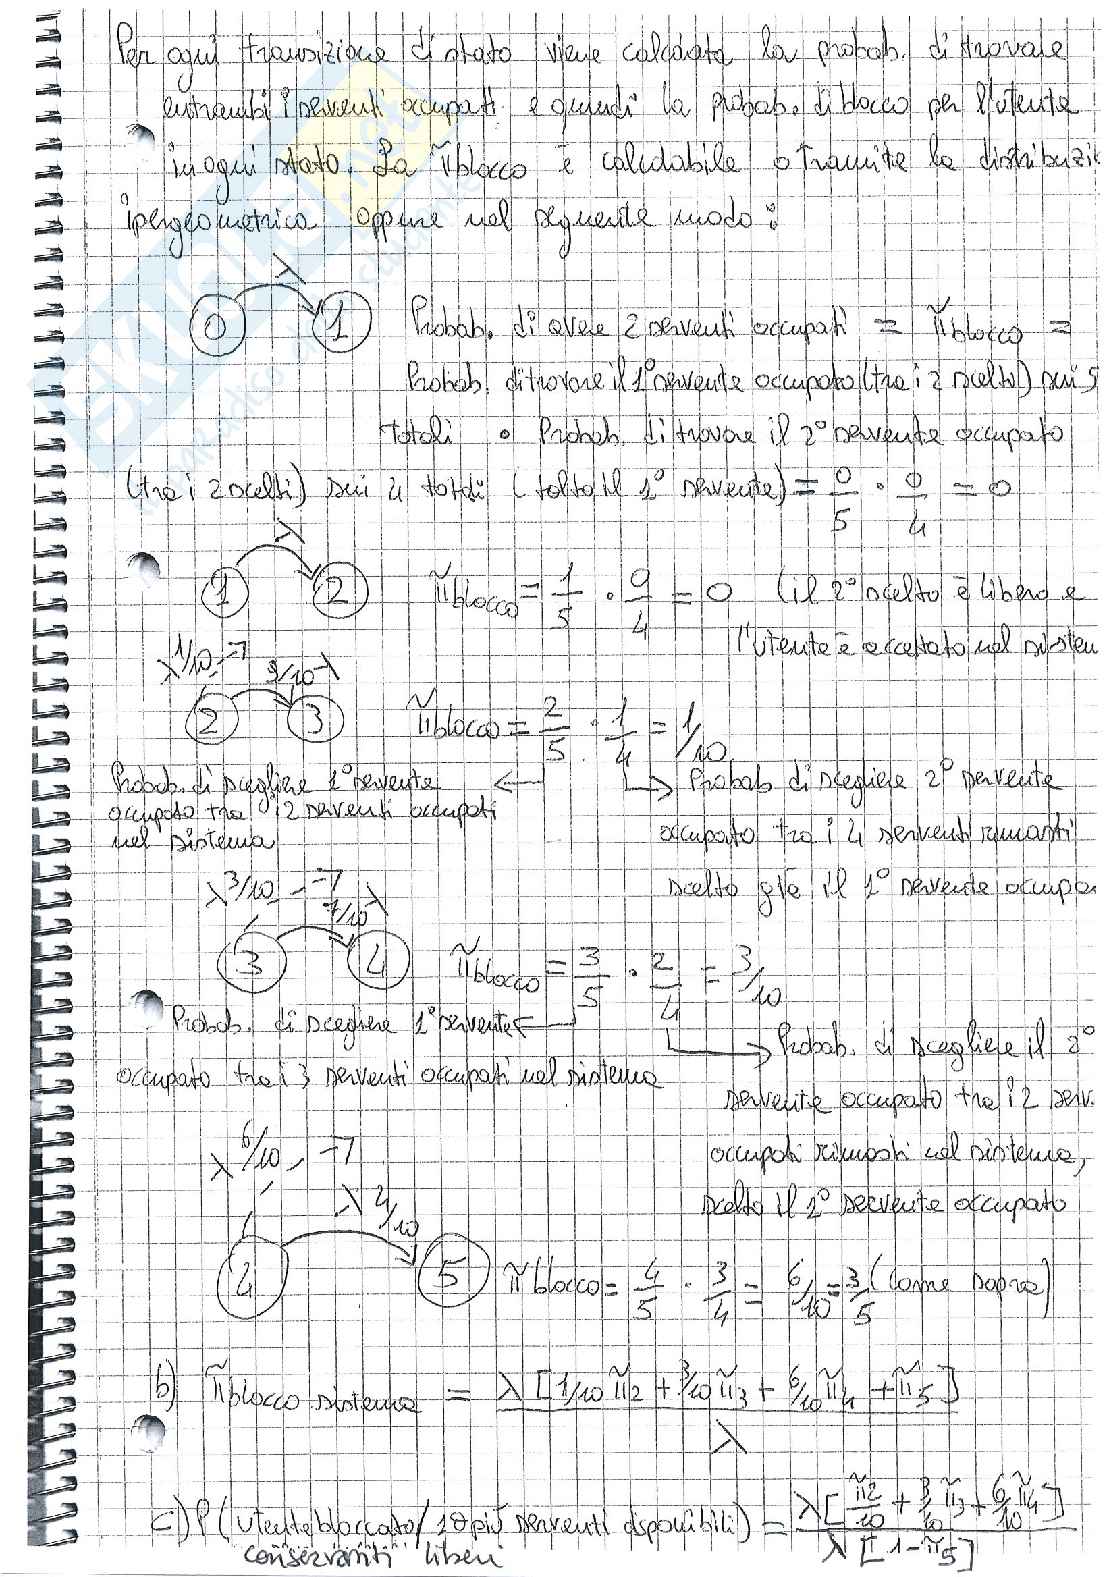 Per ogni transizione di stato viene calcolata la probab. di trovare
entrambi i serventi occupati e quindi la probab. di blocco per l'utente
in ogni stato. La π̃blocco è calcolabile o tramite la distribuzi
ipergeometrica oppure nel seguente modo:
λ
0 1 Probab. di avere 2 serventi occupati = π̃blocco =
Probab. di trovare il 1° servente occupato (tra i 2 scelto) sui 5
totali • Probab. di trovare il 2° servente occupato
(tra i 2 scelti) sui 4 totali (tolto il 1° servente) = 0/5 · 0/4 = 0
λ
1 2 π̃blocco = 1/5 · 0/4 = 0 (il 2° scelto è libero e
l'utente è accettato nel sistem
λ 1/10 9/10 λ
2 3 π̃blocco = 2/5 · 1/4 = 1/10
Probab. di scegliere 1° servente
occupato tra i 2 serventi occupati
nel sistema
Probab. di scegliere 2° servente
occupato tra i 4 serventi rimasti
scelto già il 1° servente occupa
λ 3/10 7/10 λ
3 4 π̃blocco = 3/5 · 2/4 = 3/10
Probab. di scegliere 1° servente
occupato tra i 3 serventi occupati nel sistema
Probab. di scegliere il 2°
servente occupato tra i 2 serv.
occupati rimasti nel sistema,
scelto il 1° servente occupato
λ 6/10 λ 4/10
4 5 π̃blocco = 4/5 · 3/4 = 6/10 = 3/5 (come sopra)
b) π̃blocco sistema = λ [1/10 π̃2 + 3/10 π̃3 + 6/10 π̃4 + π̃5] / λ
c) P (utente bloccato / 1 o più serventi disponibili) = λ [π̃2/10 + 3/10 π̃3 + 6/10 π̃4] / λ [1 - π̃5]
liberi